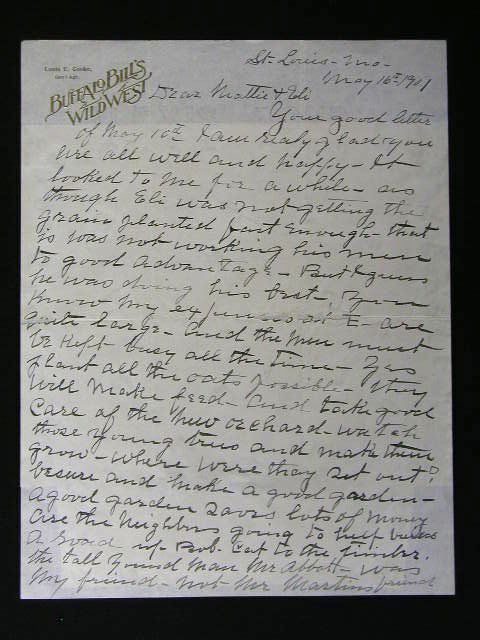 Louis E. Cooke,
Gen'l Agt.
BUFFALO BILL'S
WILD WEST
St. Louis - Mo -
May 16th 1901
Dear Mattie & Eli
Your good letter
of May 10th I am realy glad you
are all well and happy - It
looked to me for a while - as
though Eli was not getting the
grain planted fast enough - that
is was not working his men
to good advantage - But I guess
he was doing his best, You
know my expenses at E - are
quite large - and the men must
be kept busy all the time - Yes
plant all the oats possible - they
will make feed - and take good
care of the new orchard - watch
those young trees and make them
grow - where were they set out?
be sure and make a good garden -
a good garden saves lots of money
are the neighbors going to help build
a road up Bob Cat to the timber.
the tall young man Mr Abbott - was
my friend - not Mr Martins friend